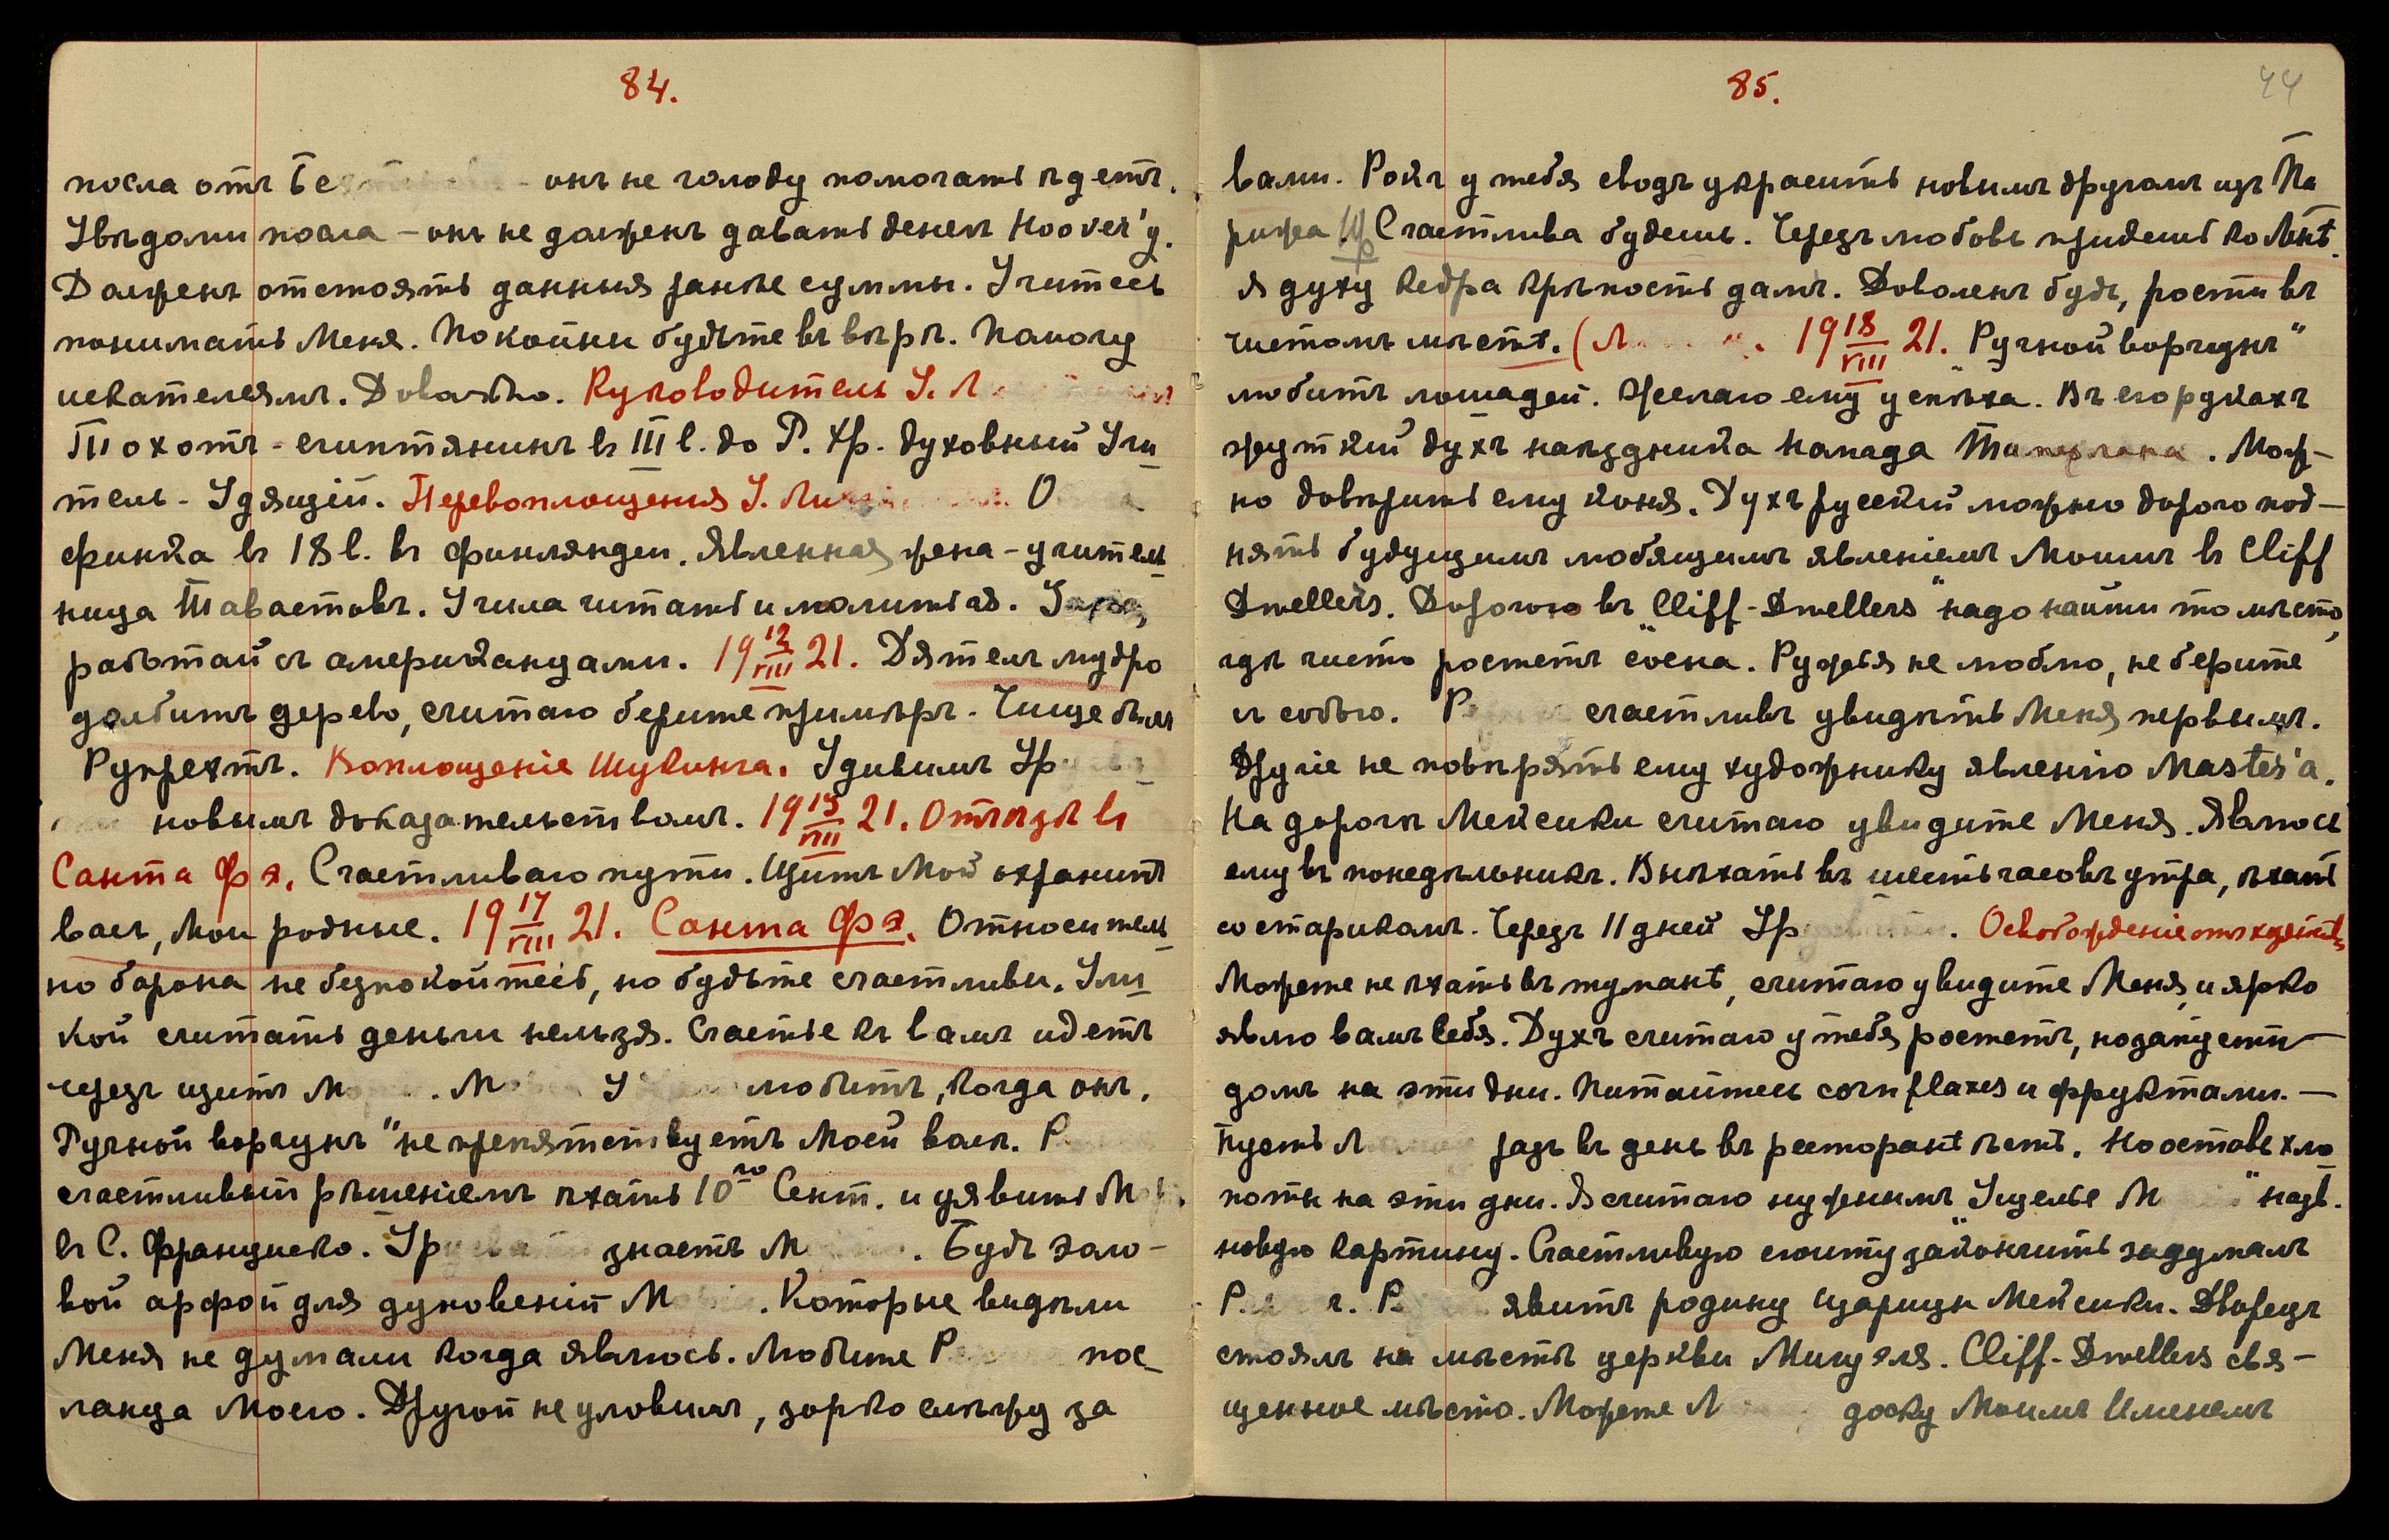 84.
посла отъ Бе онъ не голоду помогать ѣдетъ.
Увѣдоми посла – онъ не долженъ давать денегъ Hoover'у.
Долженъ отстоять данныя ранѣе суммы. Учитесь
понимать Меня. Покойны будьте въ вѣрѣ. Помогу
искателямъ. Довольно. Руководитель У. Л
Тохотъ - египтянинъ въ III в. до Р. Хр. духовный Учи
тель - Удящій. Перевоплощенія У. Ли О
финка въ 18 в. въ Финлянди. Явленная жена - учитель
ница Тавастовъ. Учила читать и молиться.
работай съ американцами. 19 12/VIII 21. Дятелъ мудро
долбитъ дерево, считаю берите примѣръ. Чище былъ
Рупрехтъ. Воплощеніе Шукинга. Удивимъ Ур
новымъ доказательствомъ. 19 15/VIII 21. Отъѣздъ въ
Санта Фэ. Счастливаго пути. Щитъ Мой охранитъ
васъ, Мои родные. 19 17/VIII 21. Санта Фэ. Относитель
но барона не безпокойтесь, но будьте счастливы. Ули
кой считать деньги нельзя. Счастье къ вамъ идетъ
черезъ щитъ М . М У любитъ, когда онъ.
Ручной ворчунъ" не препятствуетъ Моей волѣ. Р
счастливый рѣшеніемъ ѣхать 10го Сент. и удявить М
въ С. Франциско. Ур знаетъ М . Будь эоло-
вой арфой для дуновеній М . Которые видѣли
Меня не думали когда явлюсь. Любите Р пос
ланца Моего. Другой не уловимъ, зорко слѣжу за
85.
44
вами. Рокъ у тебя сводъ украсить новымъ другомъ изъ Па
рижа Ш Счастлива будешь. Черезъ любовь придешь ко Мнѣ.
я духу кедра крѣпость далъ. Доволенъ будь, рости въ
чистомъ мѣстѣ. (Л 19 18/VIII 21. Ручной ворчунъ"
любитъ лошадей. Желаю ему успѣха. Въ его рукахъ
жуткій духъ наѣздника Тимерлана. Мож-
но довѣрить ему коня. Духъ русскій можно дорого под-
нять будущимъ любящимъ явленіемъ Моимъ въ Cliff
Dwellers. Дорогою въ "Cliff-Dwellers" надо найти то мѣсто,
гдѣ чисто ростетъ сосна. Ружья не люблю, не берите
съ собою. Р счастливъ увидѣть Меня первымъ.
Другіе не повѣрятъ ему художнику явленію Master'а.
На дорогѣ Мексики считаю увидите Меня. Явлюсь
ему въ понедѣльникъ. Выѣхать въ шесть часовъ утра, ѣхать
со старикомъ. Черезъ 11 дней Ур . Освобожденіе отъ
Можете не ѣхать въ туманѣ, считаю увидите Меня, и ярко
явлю вамъ Себя. Духъ считаю у тебя ростетъ,
домъ на эти дни. Питайтесь corn flaxes и фруктами. —
Пусть Л разъ въ день въ ресторанѣ ѣстъ. Но оставь хло
поты на эти дни. Я считаю нужнымъ "Ущелье М " назв.
новую картину. Счастливую сюиту закончить задумалъ
Р. г. Р явитъ родину Царицы Мексики. Дворецъ
стоялъ на мѣстѣ церкви Мигуэля. Cliff-Dwellers свя-
щенное мѣсто. Можете Л доску Моимъ Именемъ